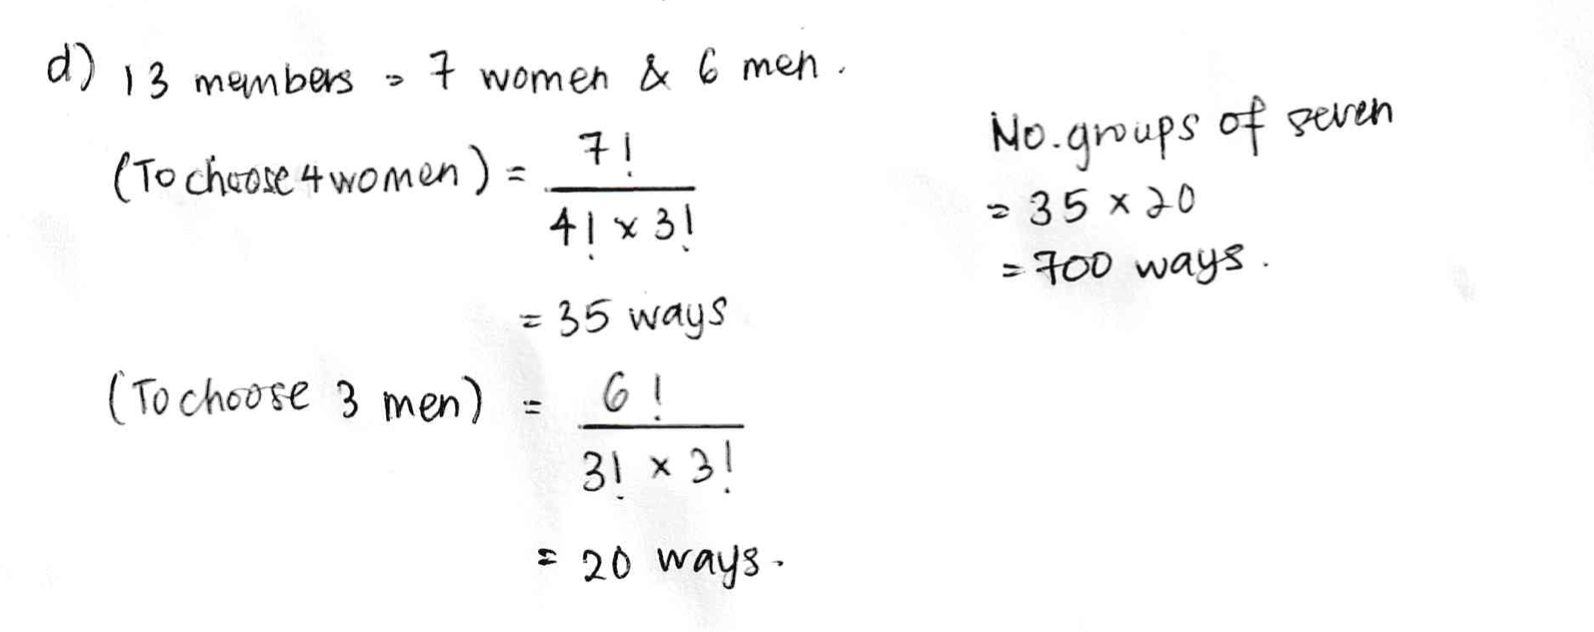 d) 13 members = 7 women & 6 men.
(To choose 4 women) = 7! / 4! × 3!
= 35 ways
(To choose 3 men) = 6! / 3! × 3!
= 20 ways.
No. groups of seven
= 35 × 20
= 700 ways.